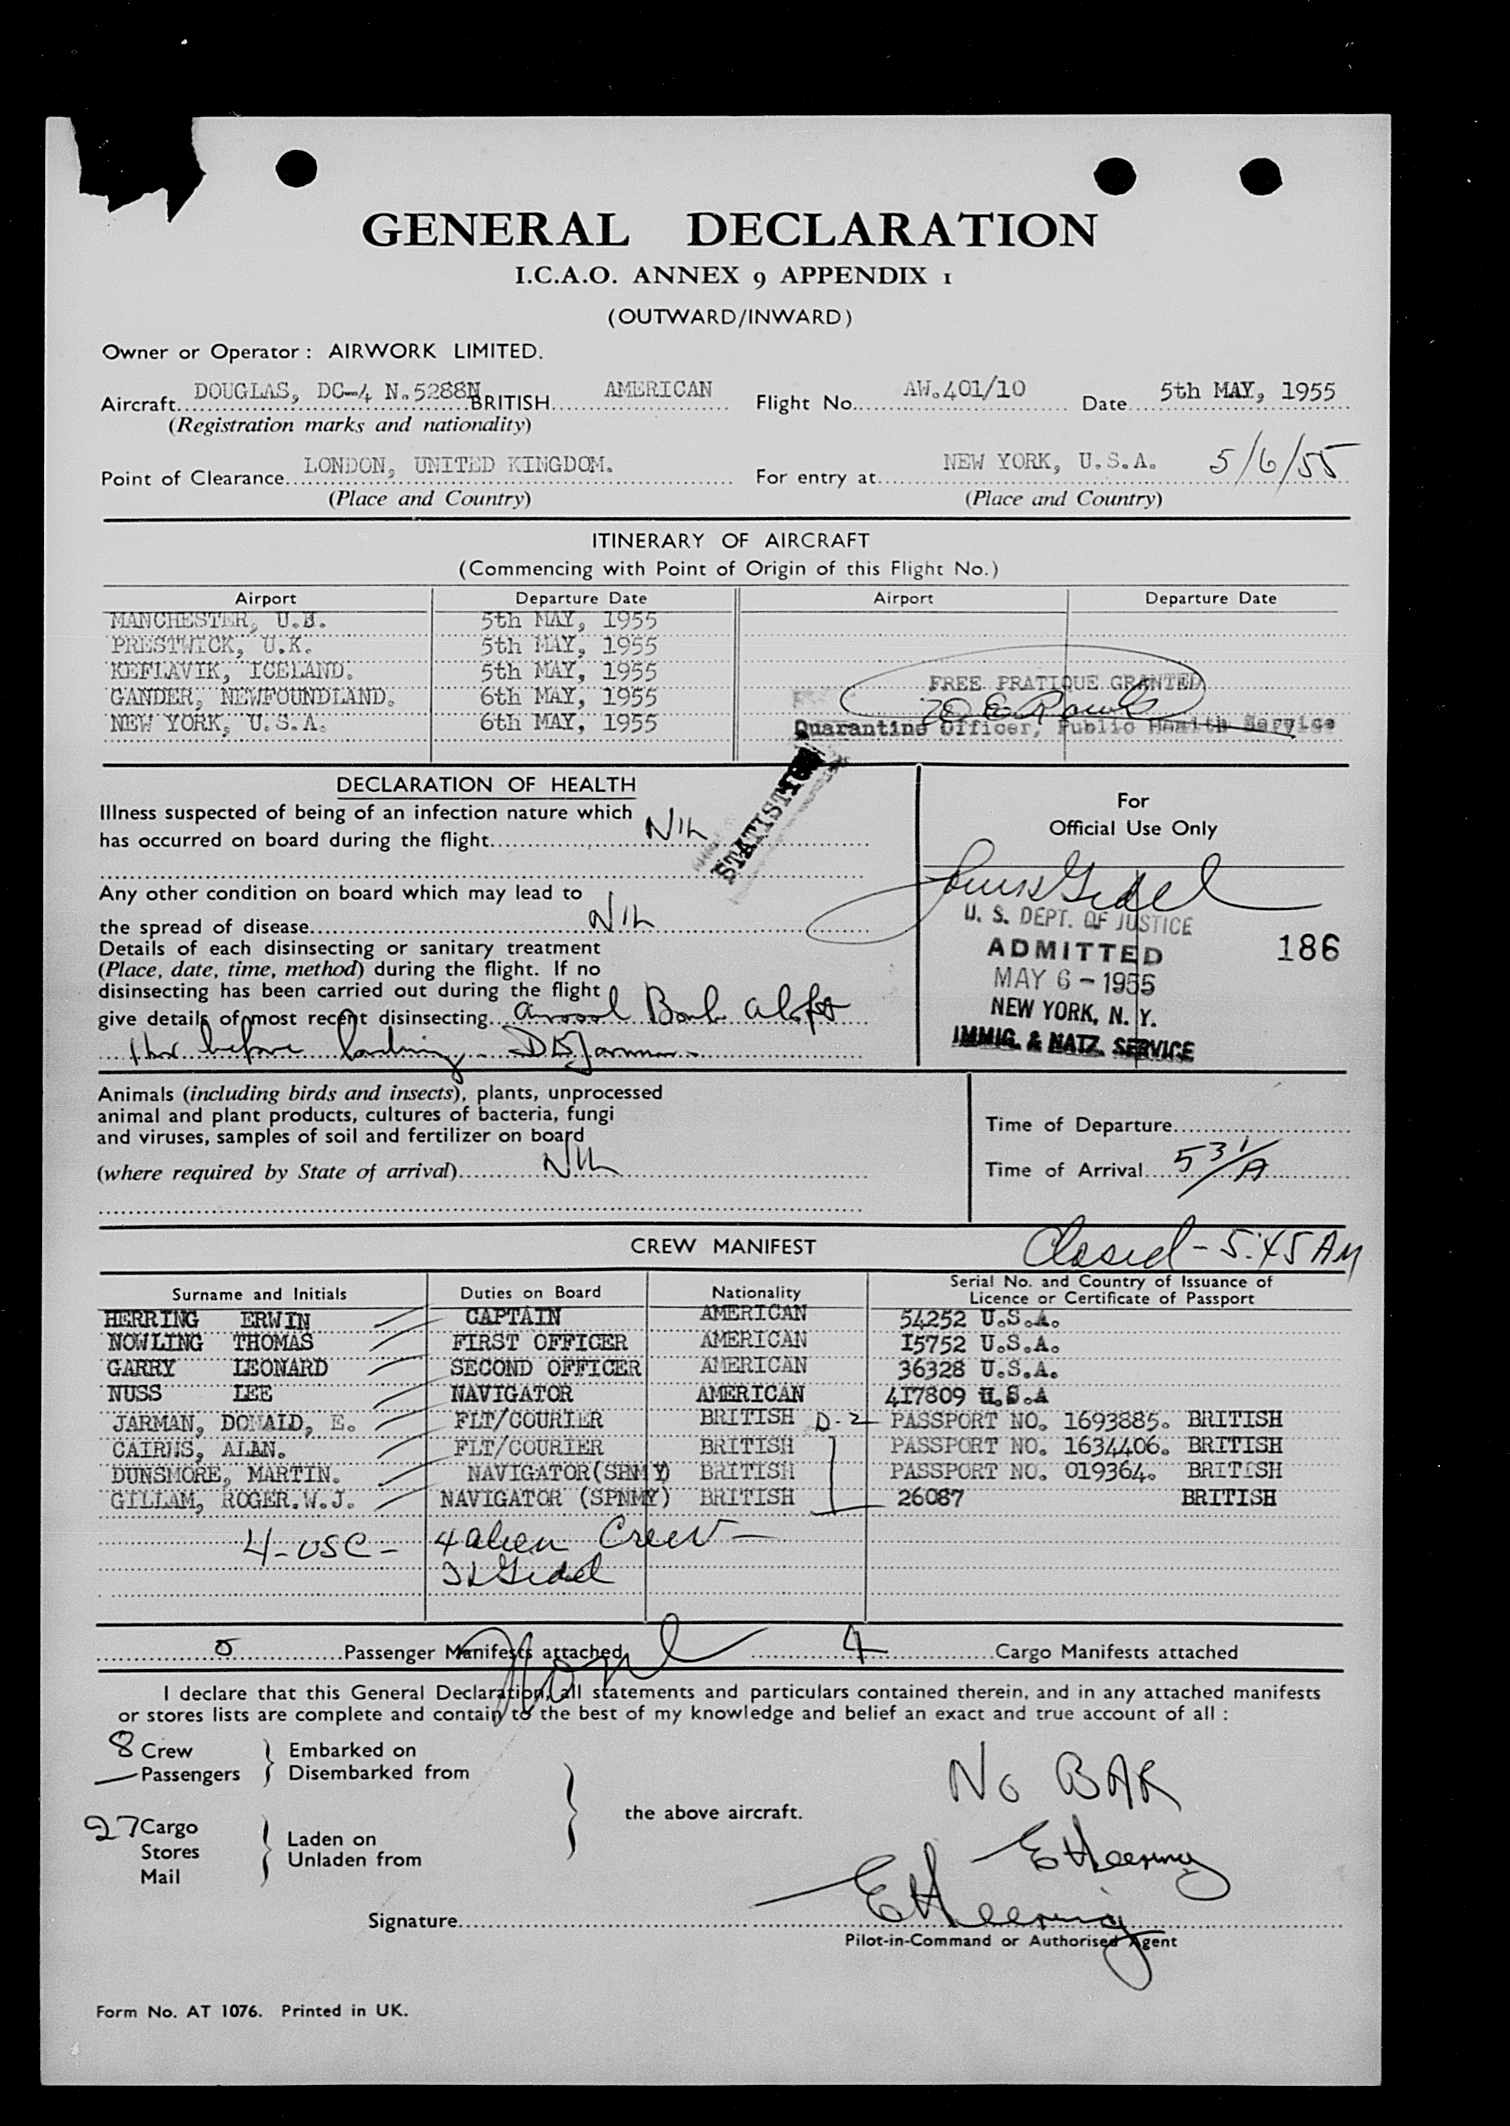 GENERAL DECLARATION
I.C.A.O. ANNEX 9 APPENDIX 1
(OUTWARD/INWARD)
Owner or Operator : AIRWORK LIMITED.
Aircraft DOUGLAS, DC-4 N.5288N BRITISH AMERICAN Flight No. AW.401/10 Date 5th MAY, 1955
(Registration marks and nationality)
Point of Clearance LONDON, UNITED KINGDOM. For entry at NEW YORK, U.S.A. 5/6/55
(Place and Country) (Place and Country)
ITINERARY OF AIRCRAFT
(Commencing with Point of Origin of this Flight No.)
Airport Departure Date Airport Departure Date
MANCHESTER, U.K. 5th MAY, 1955
PRESTWICK, U.K. 5th MAY, 1955
KEFLAVIK, ICELAND. 5th MAY, 1955
GANDER, NEWFOUNDLAND. 6th MAY, 1955
NEW YORK, U.S.A. 6th MAY, 1955
FREE PRATIQUE GRANTED
Quarantine Officer, Public Health Service
STATISTICS
DECLARATION OF HEALTH
Illness suspected of being of an infection nature which
has occurred on board during the flight NIL
Any other condition on board which may lead to
the spread of disease NIL
Details of each disinsecting or sanitary treatment
(Place, date, time, method) during the flight. If no
disinsecting has been carried out during the flight
give details of most recent disinsecting aerosol Bomb aloft
1 hr before landing. D E Jarman
For
Official Use Only
U. S. DEPT. OF JUSTICE
ADMITTED
MAY 6 - 1955
NEW YORK, N. Y.
IMMIG. & NATZ. SERVICE
186
Animals (including birds and insects), plants, unprocessed
animal and plant products, cultures of bacteria, fungi
and viruses, samples of soil and fertilizer on board
(where required by State of arrival) NIL
Time of Departure
Time of Arrival 531/A
CREW MANIFEST Closed - 5:45 AM
Surname and Initials Duties on Board Nationality Serial No. and Country of Issuance of
Licence or Certificate of Passport
HERRING ERWIN CAPTAIN AMERICAN 54252 U.S.A.
NOWLING THOMAS FIRST OFFICER AMERICAN I5752 U.S.A.
GARRY LEONARD SECOND OFFICER AMERICAN 36328 U.S.A.
NUSS LEE NAVIGATOR AMERICAN 4I7809 U.S.A
JARMAN, DONALD, E. FLT/COURIER BRITISH D-2 PASSPORT NO. 1693885. BRITISH
CAIRNS, ALAN. FLT/COURIER BRITISH PASSPORT NO. 1634406. BRITISH
DUNSMORE, MARTIN. NAVIGATOR(SPNMY) BRITISH PASSPORT NO. 019364. BRITISH
GILLAM, ROGER.W.J. NAVIGATOR (SPNMY) BRITISH 26087 BRITISH
4-USC- 4 alien Crew-
Gidel
0 Passenger Manifests attached 4 Cargo Manifests attached
None
I declare that this General Declaration, all statements and particulars contained therein, and in any attached manifests
or stores lists are complete and contain to the best of my knowledge and belief an exact and true account of all :
8 Crew
— Passengers
Embarked on
Disembarked from
27 Cargo
Stores
Mail
Laden on
Unladen from
the above aircraft.
NO BAR
E Herring
Signature E Herring
Pilot-in-Command or Authorised Agent
Form No. AT 1076. Printed in UK.